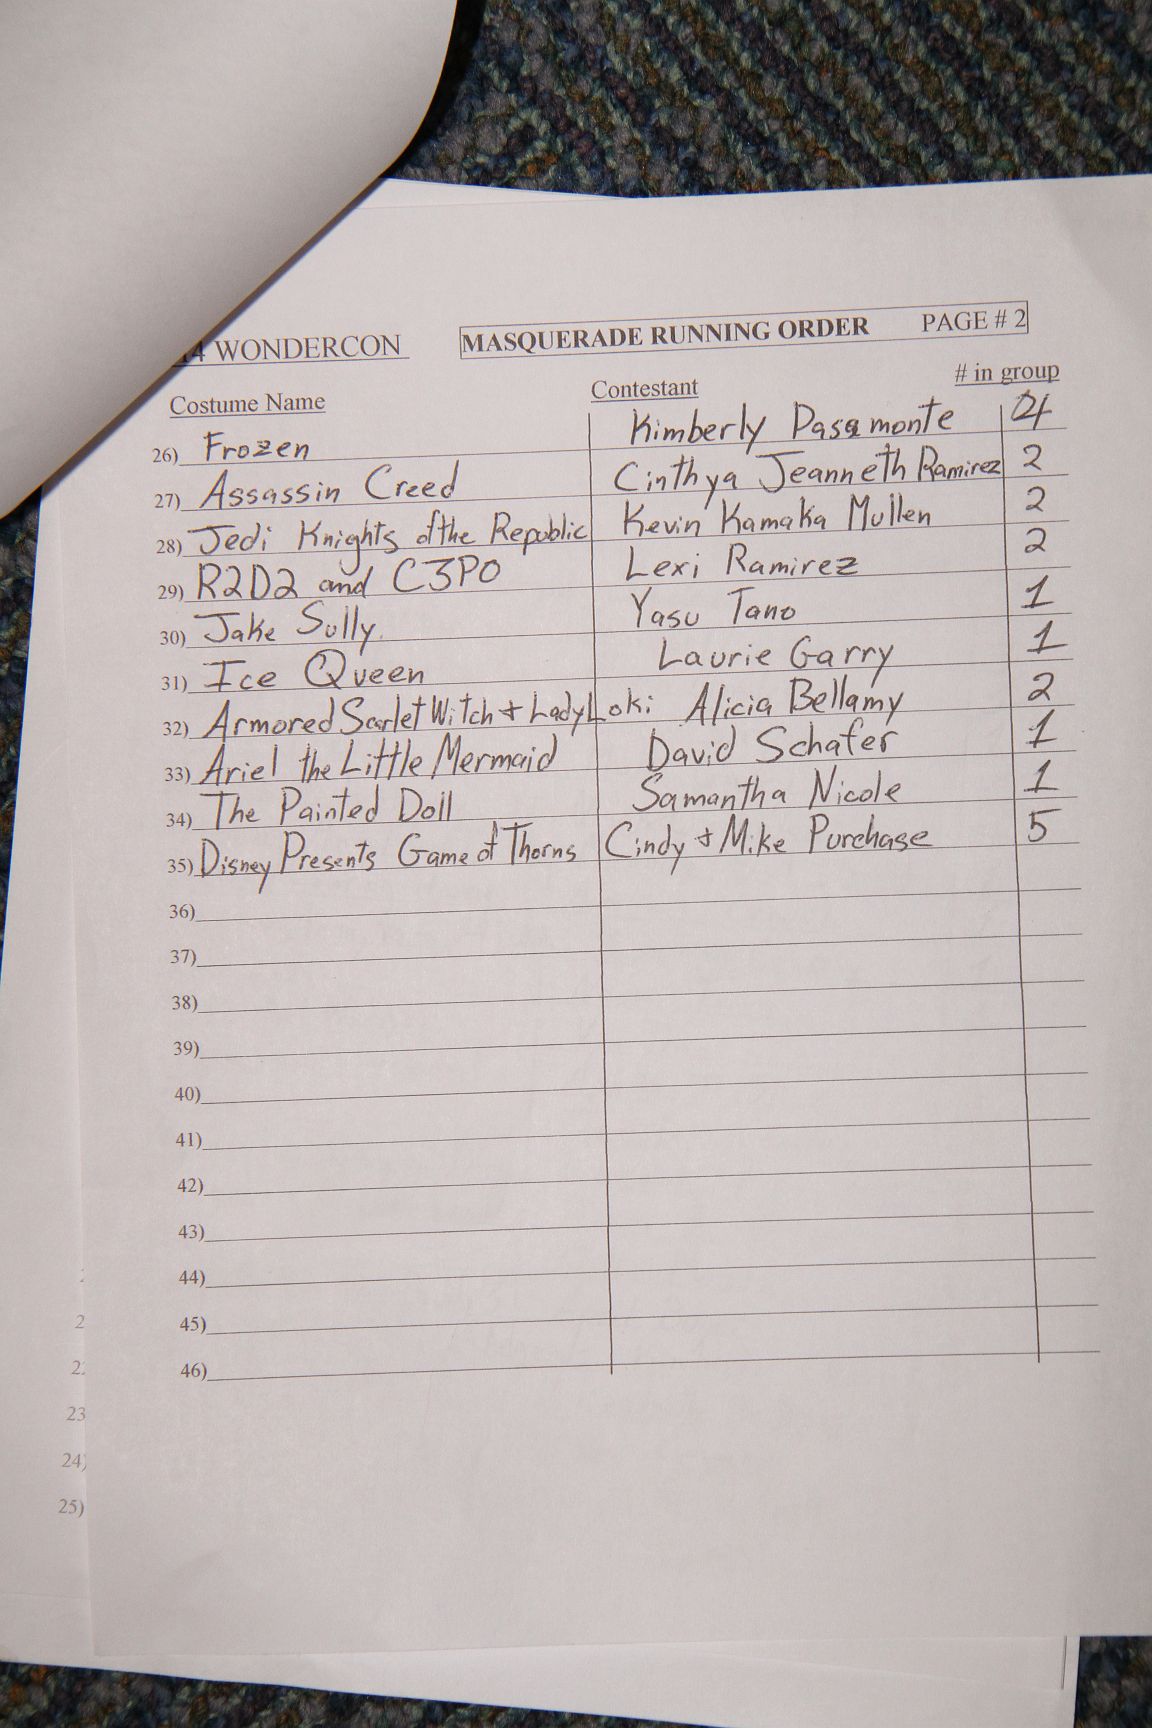 14 WONDERCON MASQUERADE RUNNING ORDER PAGE # 2
Costume Name Contestant # in group
26) Frozen Kimberly Pasamonte 4
27) Assassin Creed Cinthya Jeanneth Ramirez 2
28) Jedi Knights of the Republic Kevin Kamaka Mullen 2
29) R2D2 and C3PO Lexi Ramirez 2
30) Jake Sully Yasu Tano 1
31) Ice Queen Laurie Garry 1
32) Armored Scarlet Witch + Lady Loki Alicia Bellamy 2
33) Ariel the Little Mermaid David Schafer 1
34) The Painted Doll Samantha Nicole 1
35) Disney Presents Game of Thorns Cindy + Mike Purchase 5
36)
37)
38)
39)
40)
41)
42)
43)
44)
45)
46)
23
24)
25)